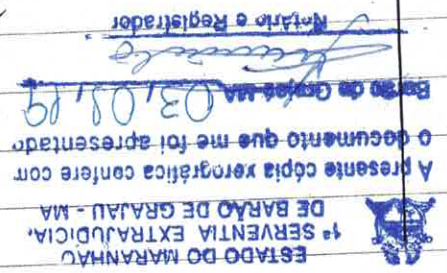 ESTADO DO MARANHAO
1ª SERVENTIA EXTRAJUDICIA.
DE BARÃO DE GRAJAÚ - MA
A presente cópia xerográfica confere com
o documento que me foi apresentado
Barão de Grajaú-MA
Notário e Registrador